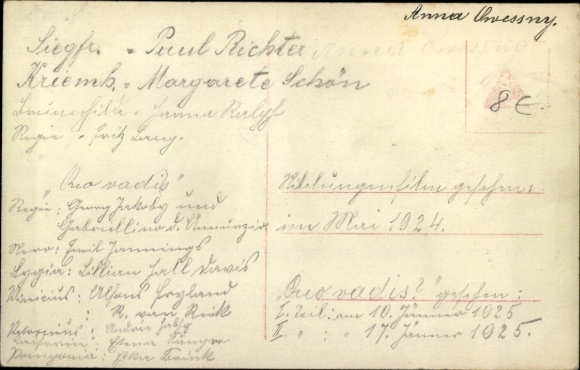 Anna Owessny.
Siegfr. = Paul Richter
Kriemh. = Margarete Schön
Brunnhilde = Hanna Ralph
Regie = Fritz Lang.
8 €.
"Quo vadis"
Regie: Georg Jakoby und
Gabriellino d. Annunzio
Nero: Emil Jannings
Lygia: Lillian Hall Davis
Vinicius: Alfons Fryland
" R. van Riel
Petronius: Andre Habay
Elena Sangro
Pomponia:
Nibelungenfilm gesehen:
im Mai 1924.
"Quo vadis?" gesehen:
I. Teil: am 10. Jänner 1925
II. " : " 17. Jänner 1925.